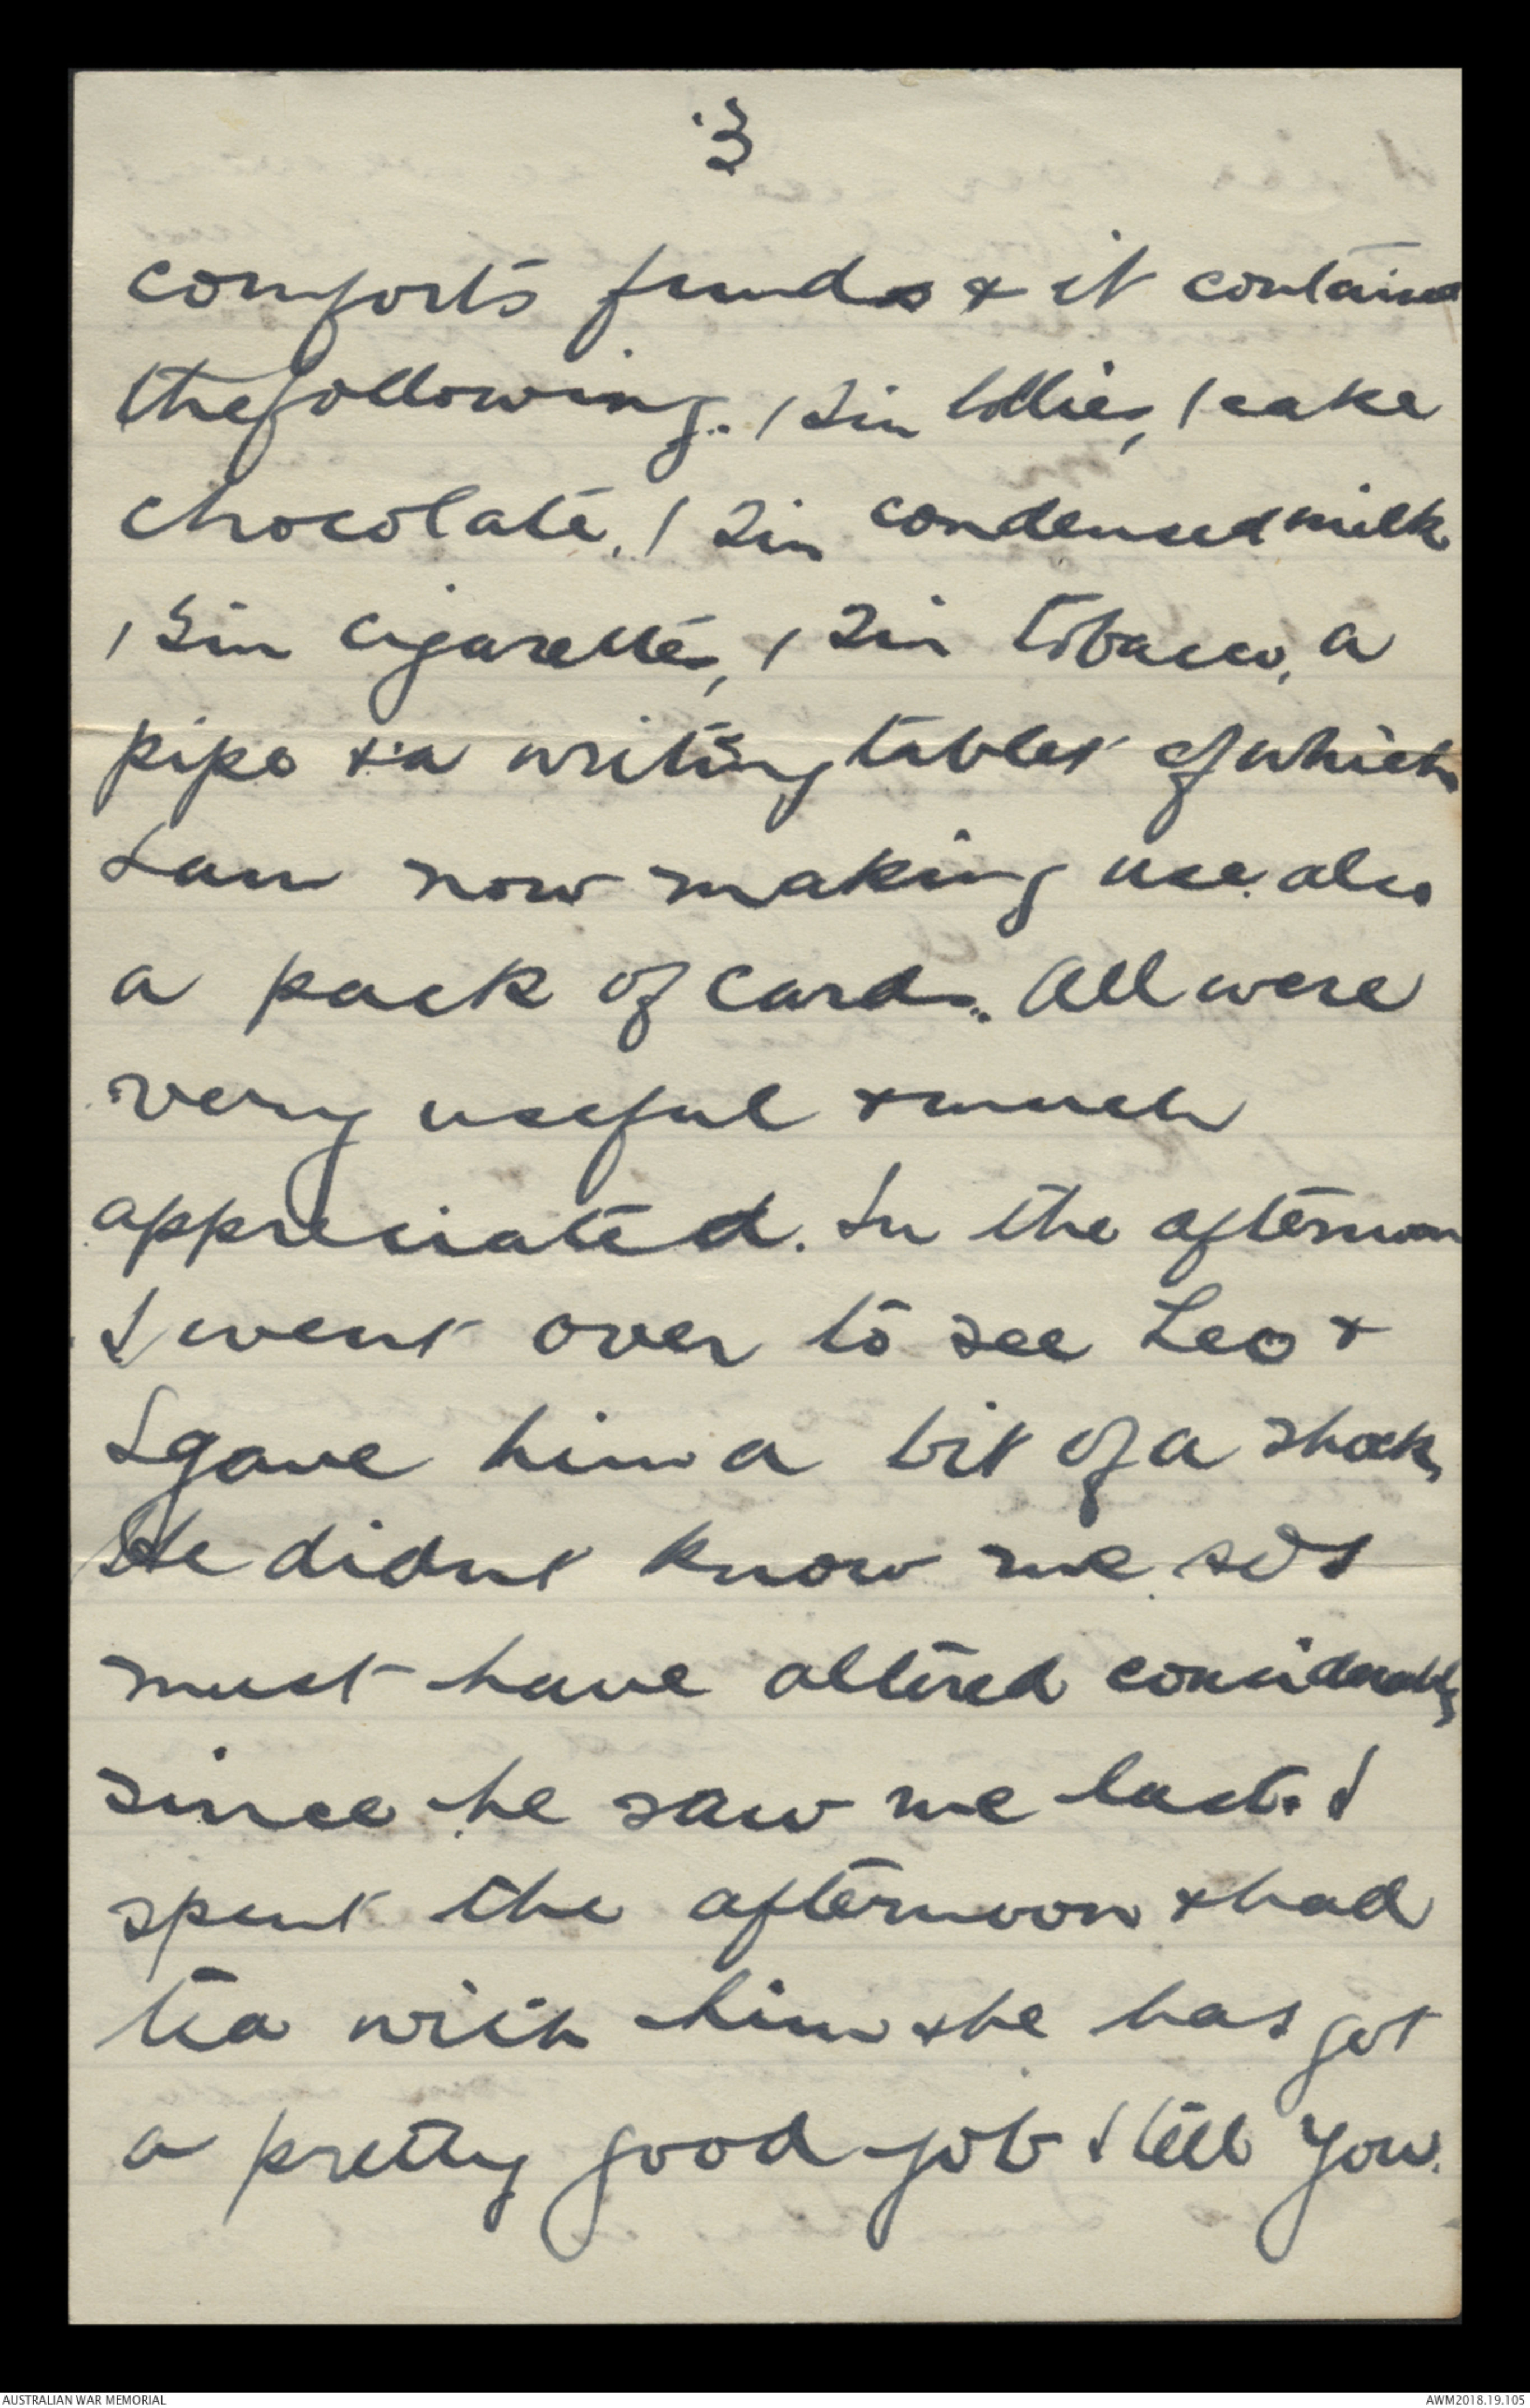 3
comforts funds & it contained
the following. 1 Tin lollies, 1 cake
chocolate, 1 Tin condensed milk
1 Tin cigarettes, 1 Tin tobacco, a
pipe & a writing tablet of which
I am now making use. also
a pack of cards. All were
very useful & much
appreciated. In the afternoon
I went over to see Leo &
I gave him a bit of a shock,
He didnt know me so I
must have altered considerably
since he saw me last. I
spent the afternoon & had
tea with him & he has got
a pretty good job I tell you.
AUSTRALIAN WAR MEMORIAL
AWM2018.19.105